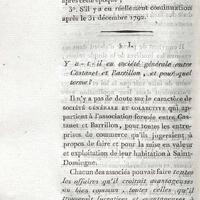 après cette époque ;
3°. S'il y a eu réellement continuation
après le 31 décembre 1792.
§. I.
Y a-t-il eu société générale entre
Castanet et Barrillon, et pour quel
terme ?
Il n'y a pas de doute sur le caractère de
SOCIÉTÉ GÉNÉRALE ET COLLECTIVE qui ap-
partient à l'association formée entre Cas-
tanet et Barrillon, pour toutes les entre-
prises de commerce qu'ils jugeraient à
propos de faire et pour la mise en valeur
et exploitation de leur habitation à Saint-
Domingue.
Chacun des associés pouvait faire toutes
les affaires qu'il croirait avantageuses
ou bien commun, toutes celles qu'il